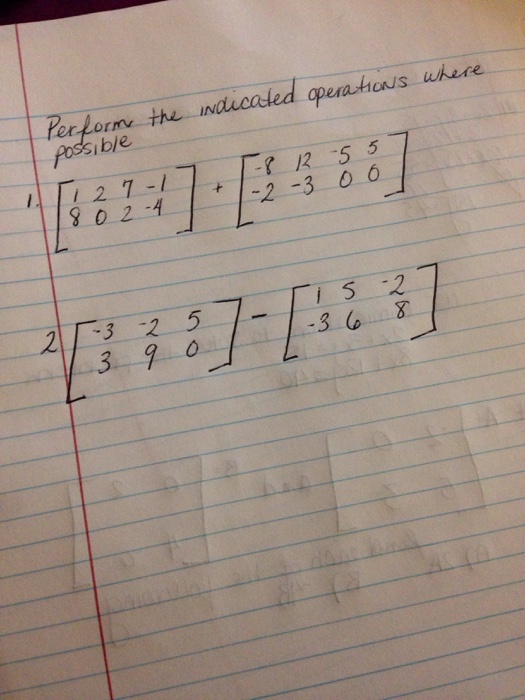 Perform the indicated operations where
possible
1. [1 2 7 -1 + [-8 12 -5 5
8 0 2 -4] -2 -3 0 0]
2 [-3 -2 5 - [1 5 -2
3 9 0] -3 6 8]